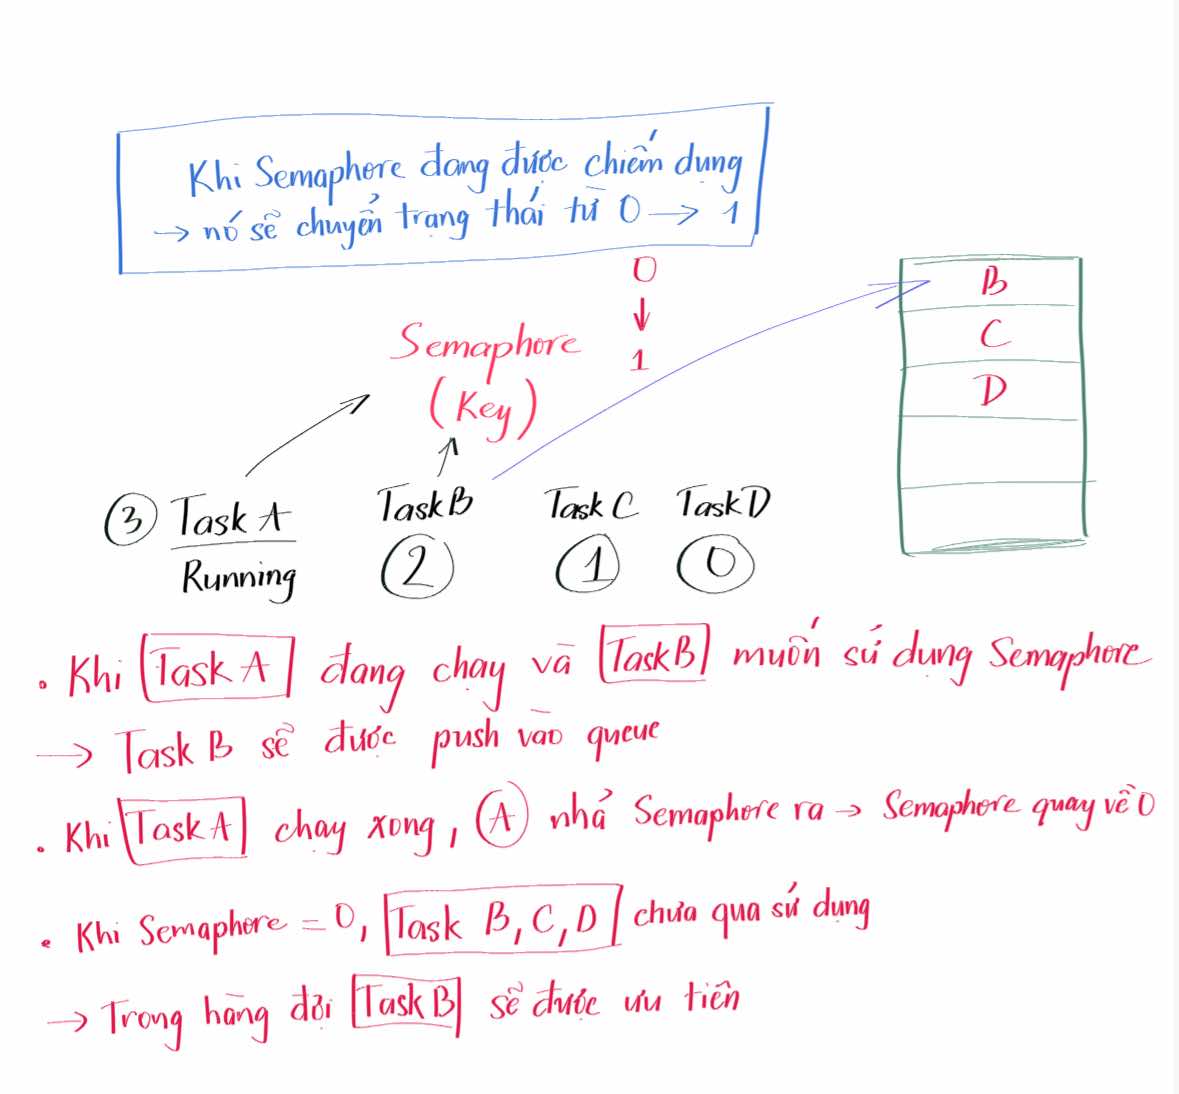 Khi Semaphore đang được chiếm dụng
→ nó sẽ chuyển trạng thái từ 0 → 1
0
↓
1
Semaphore
(Key)
B
C
D
3 Task A
Running
Task B
2
Task C
1
Task D
0
• Khi Task A đang chạy và Task B muốn sử dụng Semaphore
→ Task B sẽ được push vào queue
• Khi Task A chạy xong, A nhả Semaphore ra → Semaphore quay về 0
• Khi Semaphore = 0, Task B, C, D chưa qua sử dụng
→ Trong hàng đợi Task B sẽ được ưu tiên